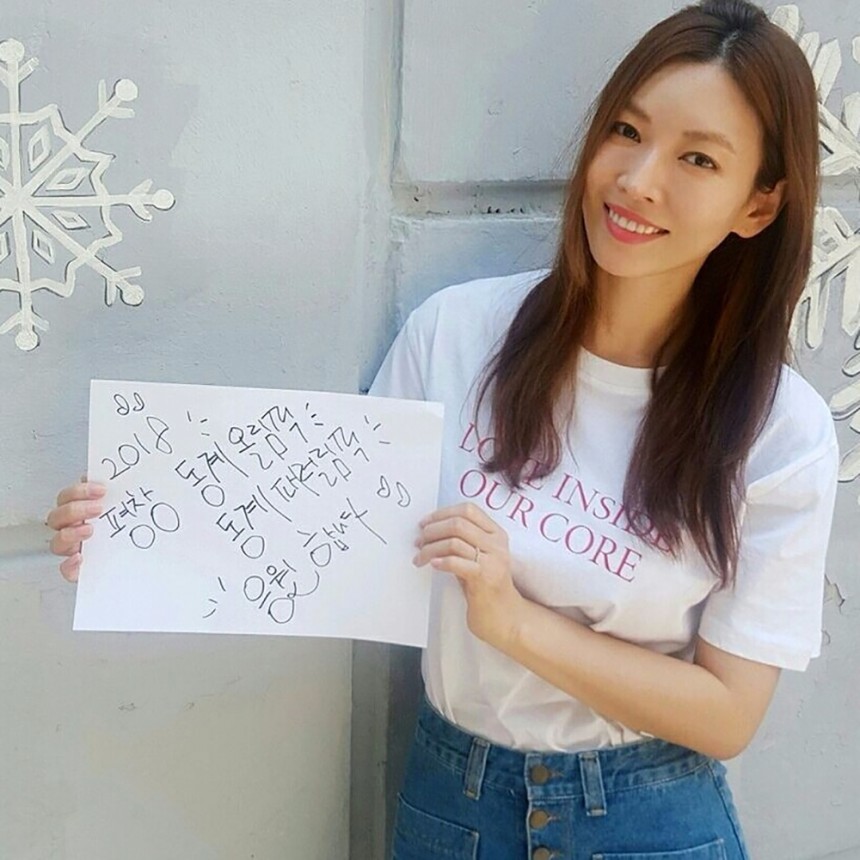 2018
평창
동계 올림픽
동계 패럴림픽
응원 합니다
LOVE INSIDE
OUR CORE